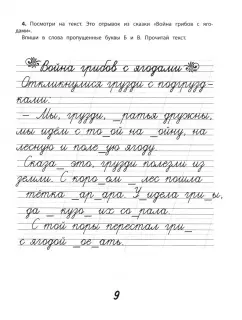 4. Посмотри на текст. Это отрывок из сказки «Война грибов с яго-
дами».
Впиши в слова пропущенные буквы Б и В. Прочитай текст.
Война грибов с ягодами
Откликнулися грузди с подгрузд-
ками:
— Мы, грузди, _ратья дружны,
мы идём с то_ой на _ойну, на
лесную и поле_ую ягоду.
Сказа_ это, грузди полезли из
земли. С коро_ом _ лес пошла
тётка _ар_ара. У_идела гри_ы,
да _ кузо_ их со_рала.
С той поры перестал гри_
с ягодой _ое_ать.
9